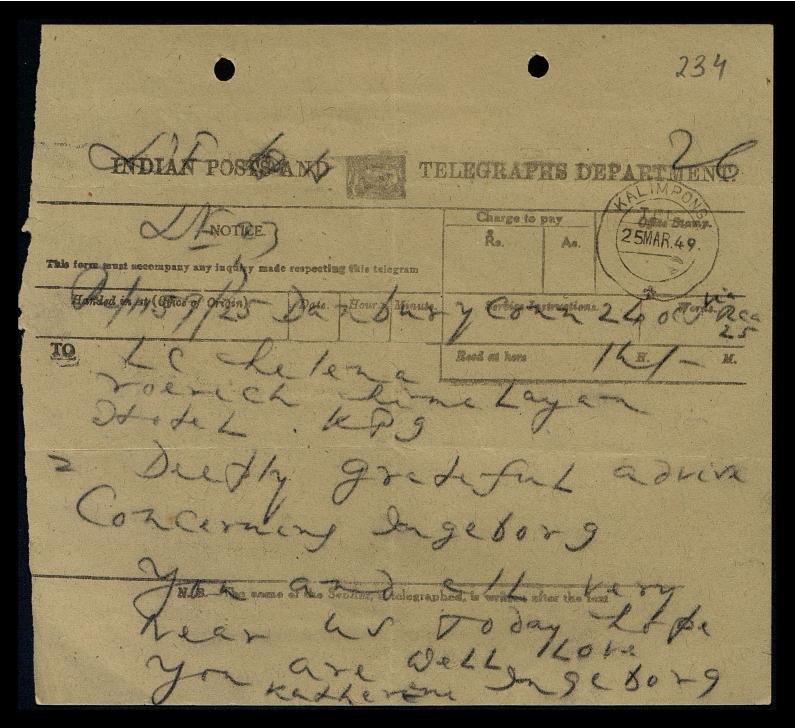 234
INDIAN POSTS AND TELEGRAPHS DEPARTMENT.
NOTICE.
This form must accompany any inquiry made respecting this telegram
Charge to pay
Rs. As.
Office Stamp.
KALIMPONG
25 MAR. 49.
Handed in at (Office of Origin). Date. Hour. Minute. Service Instructions. Words.
25 Danbury Conn 24 via
RCA
25
TO
Recd at here H. M.
LC helena
roerich himalayan
Hotel . KPg
= Deeply grateful advise
Concerning Ingeborg
You and all very
N.B. The name of the Sender, if telegraphed, is written after the text
near us Today hope
you are well love
Katherine Ingeborg